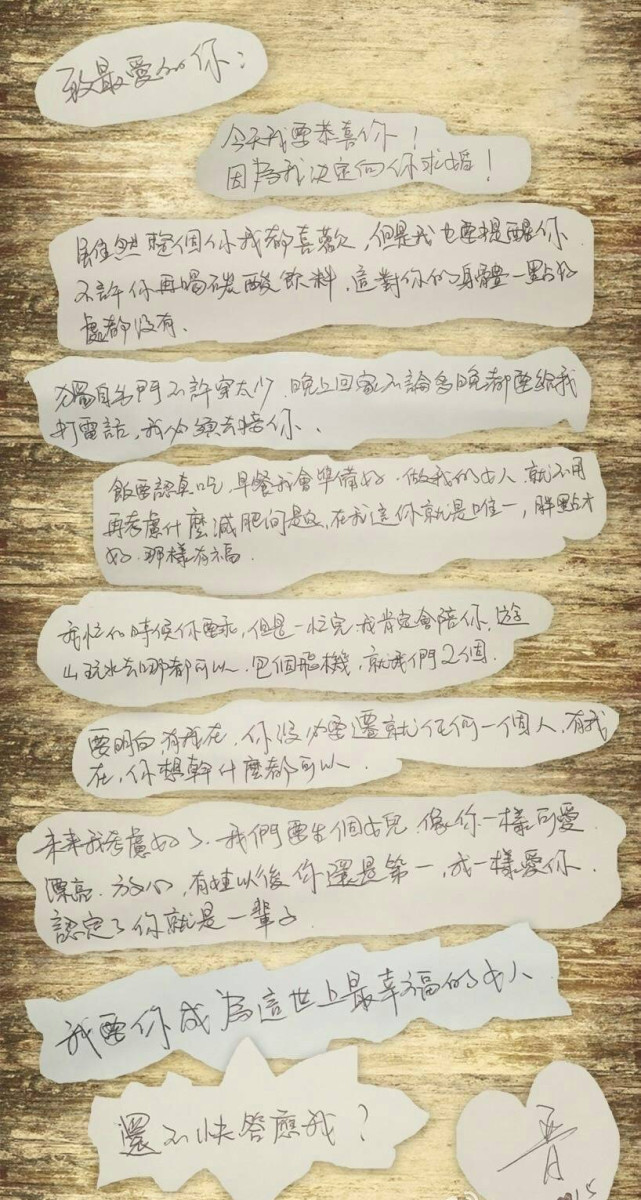 致最愛的你：
今天我要恭喜你！
因為我決定向你求婚！
雖然整個你我都喜歡，但是我也要提醒你
不許你再喝碳酸飲料，這對你的身體一點好
處都沒有．
獨自出門不許穿太少．晚上回家不論多晚都要給我
打電話，我必須去接你．
飯要認真吃．早餐我會準備好．做我的女人．就不用
再考慮什麼減肥問題，在我這你就是唯一，胖點才
好．那樣有福．
我忙的時候你要乖，但是一忙完，我肯定會陪你．遊
山玩水去哪都可以．包個飛機，就我們2個．
要明白有我在，你沒必要遷就任何一個人，有我
在，你想幹什麼都可以．
未來我考慮好了．我們要生個女兒．像你一樣可愛
漂亮．放心，有娃以後你還是第一，我一樣愛你．
認定了你就是一輩子
我要你成為這世上最幸福的女人
還不快答應我？
晋